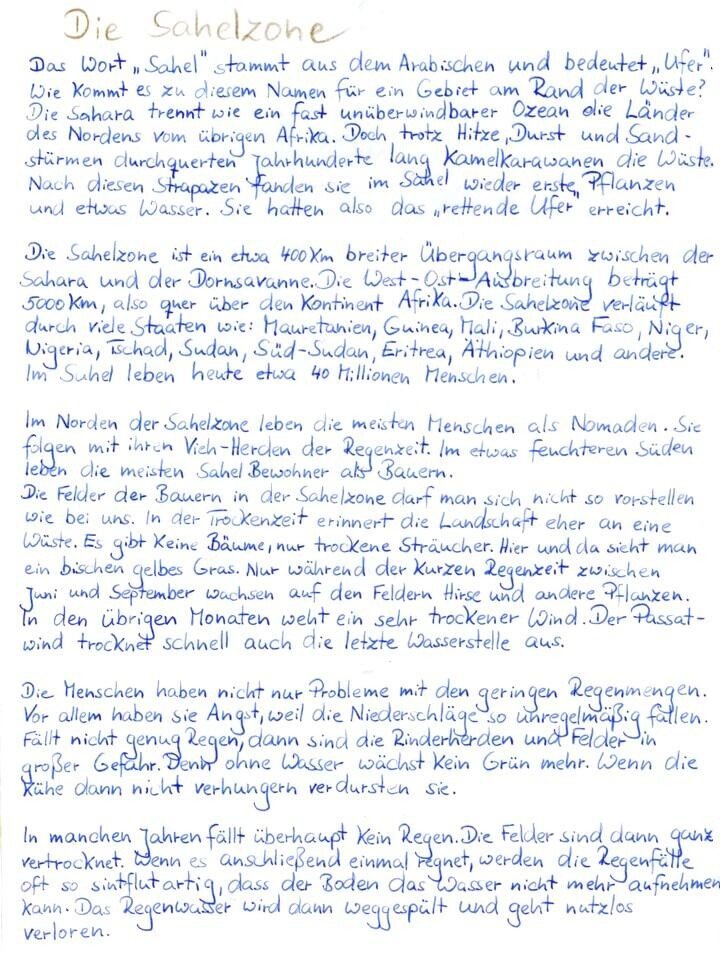 Die Sahelzone
Das Wort „Sahel" stammt aus dem Arabischen und bedeutet „Ufer".
Wie kommt es zu diesem Namen für ein Gebiet am Rand der Wüste?
Die Sahara trennt wie ein fast unüberwindbarer Ozean die Länder
des Nordens vom übrigen Afrika. Doch trotz Hitze, Durst und Sand-
stürmen durchquerten jahrhunderte lang Kamelkarawanen die Wüste.
Nach diesen Strapazen fanden sie im Sahel wieder erste Pflanzen
und etwas Wasser. Sie hatten also das „rettende Ufer" erreicht.
Die Sahelzone ist ein etwa 400 Km breiter Übergangsraum zwischen der
Sahara und der Dornsavanne. Die West-Ost-Ausbreitung beträgt
5000 Km, also quer über den Kontinent Afrika. Die Sahelzone verläuft
durch viele Staaten wie: Mauretanien, Guinea, Mali, Burkina Faso, Niger,
Nigeria, Tschad, Sudan, Süd-Sudan, Eritrea, Äthiopien und andere.
Im Sahel leben heute etwa 40 Millionen Menschen.
Im Norden der Sahelzone leben die meisten Menschen als Nomaden. Sie
folgen mit ihren Vieh-Herden der Regenzeit. Im etwas feuchteren Süden
leben die meisten Sahel Bewohner als Bauern.
Die Felder der Bauern in der Sahelzone darf man sich nicht so vorstellen
wie bei uns. In der Trockenzeit erinnert die Landschaft eher an eine
Wüste. Es gibt keine Bäume, nur trockene Sträucher. Hier und da sieht man
ein bischen gelbes Gras. Nur während der kurzen Regenzeit zwischen
Juni und September wachsen auf den Feldern Hirse und andere Pflanzen.
In den übrigen Monaten weht ein sehr trockener Wind. Der Passat-
wind trocknet schnell auch die letzte Wasserstelle aus.
Die Menschen haben nicht nur Probleme mit den geringen Regenmengen.
Vor allem haben sie Angst, weil die Niederschläge so unregelmäßig fallen.
Fällt nicht genug Regen, dann sind die Rinderherden und Felder in
großer Gefahr. Denn ohne Wasser wächst kein Grün mehr. Wenn die
Kühe dann nicht verhungern verdursten sie.
In manchen Jahren fällt überhaupt kein Regen. Die Felder sind dann ganz
vertrocknet. Wenn es anschließend einmal regnet, werden die Regenfälle
oft so sintflutartig, dass der Boden das Wasser nicht mehr aufnehmen
kann. Das Regenwasser wird dann weggespült und geht nutzlos
verloren.